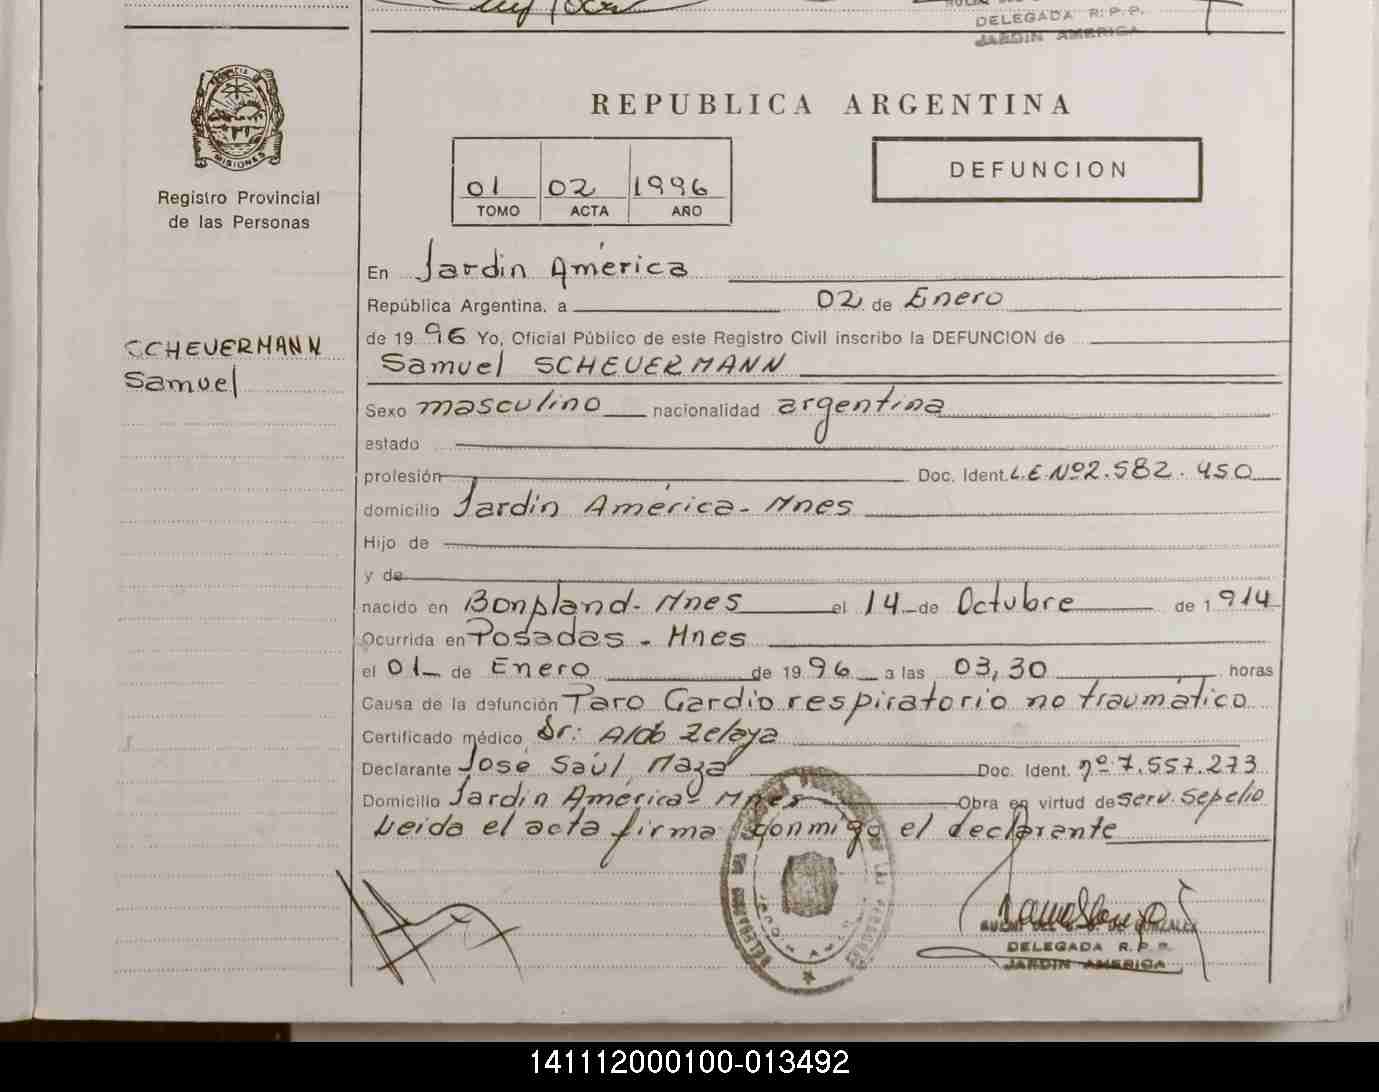 DELEGADA R. P. P.
JARDIN AMERICA
MISIONES
Registro Provincial
de las Personas
REPUBLICA ARGENTINA
01 02 1996
TOMO ACTA AÑO
DEFUNCION
SCHEUERMANN
Samuel
En Jardin América
República Argentina, a 02 de Enero
de 19 96 Yo, Oficial Público de este Registro Civil inscribo la DEFUNCION de
Samuel SCHEUERMANN
Sexo masculino nacionalidad argentina
estado
profesión Doc. Ident. L.E. Nº 2.582.450
domicilio Jardín América - Mnes
Hijo de
y de
nacido en Bonpland - Mnes el 14 de Octubre de 1914
Ocurrida en Posadas - Mnes
el 01 de Enero de 19 96 a las 03,30 horas
Causa de la defunción Paro Cardio respiratorio no traumático
Certificado médico Dr: Aldo Zelaya
Declarante José Saúl Maza Doc. Ident. nº 7.557.273
Domicilio Jardin América - Mnes Obra en virtud de serv. sepelio
Leida el acta firma conmigo el declarante
DELEGADA R. P. P.
JARDIN AMERICA
141112000100-013492